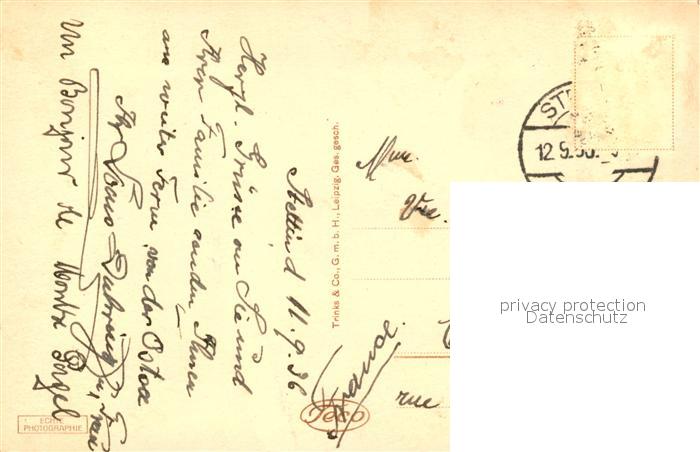 Stettin d 11.9.36
Herzl. Grüsse an Sie und
Ihrer Familie senden Ihnen
aus weiter Ferne von der Ostsee
Ihr u. Frau
Un Bonjour de
Trinks & Co., G.m.b.H., Leipzig. Ges. gesch.
Mme.
Vve.
rue
France.
Teco
ECHTE
PHOTOGRAPHIE
ST
12.9.36.
privacy protection
Datenschutz